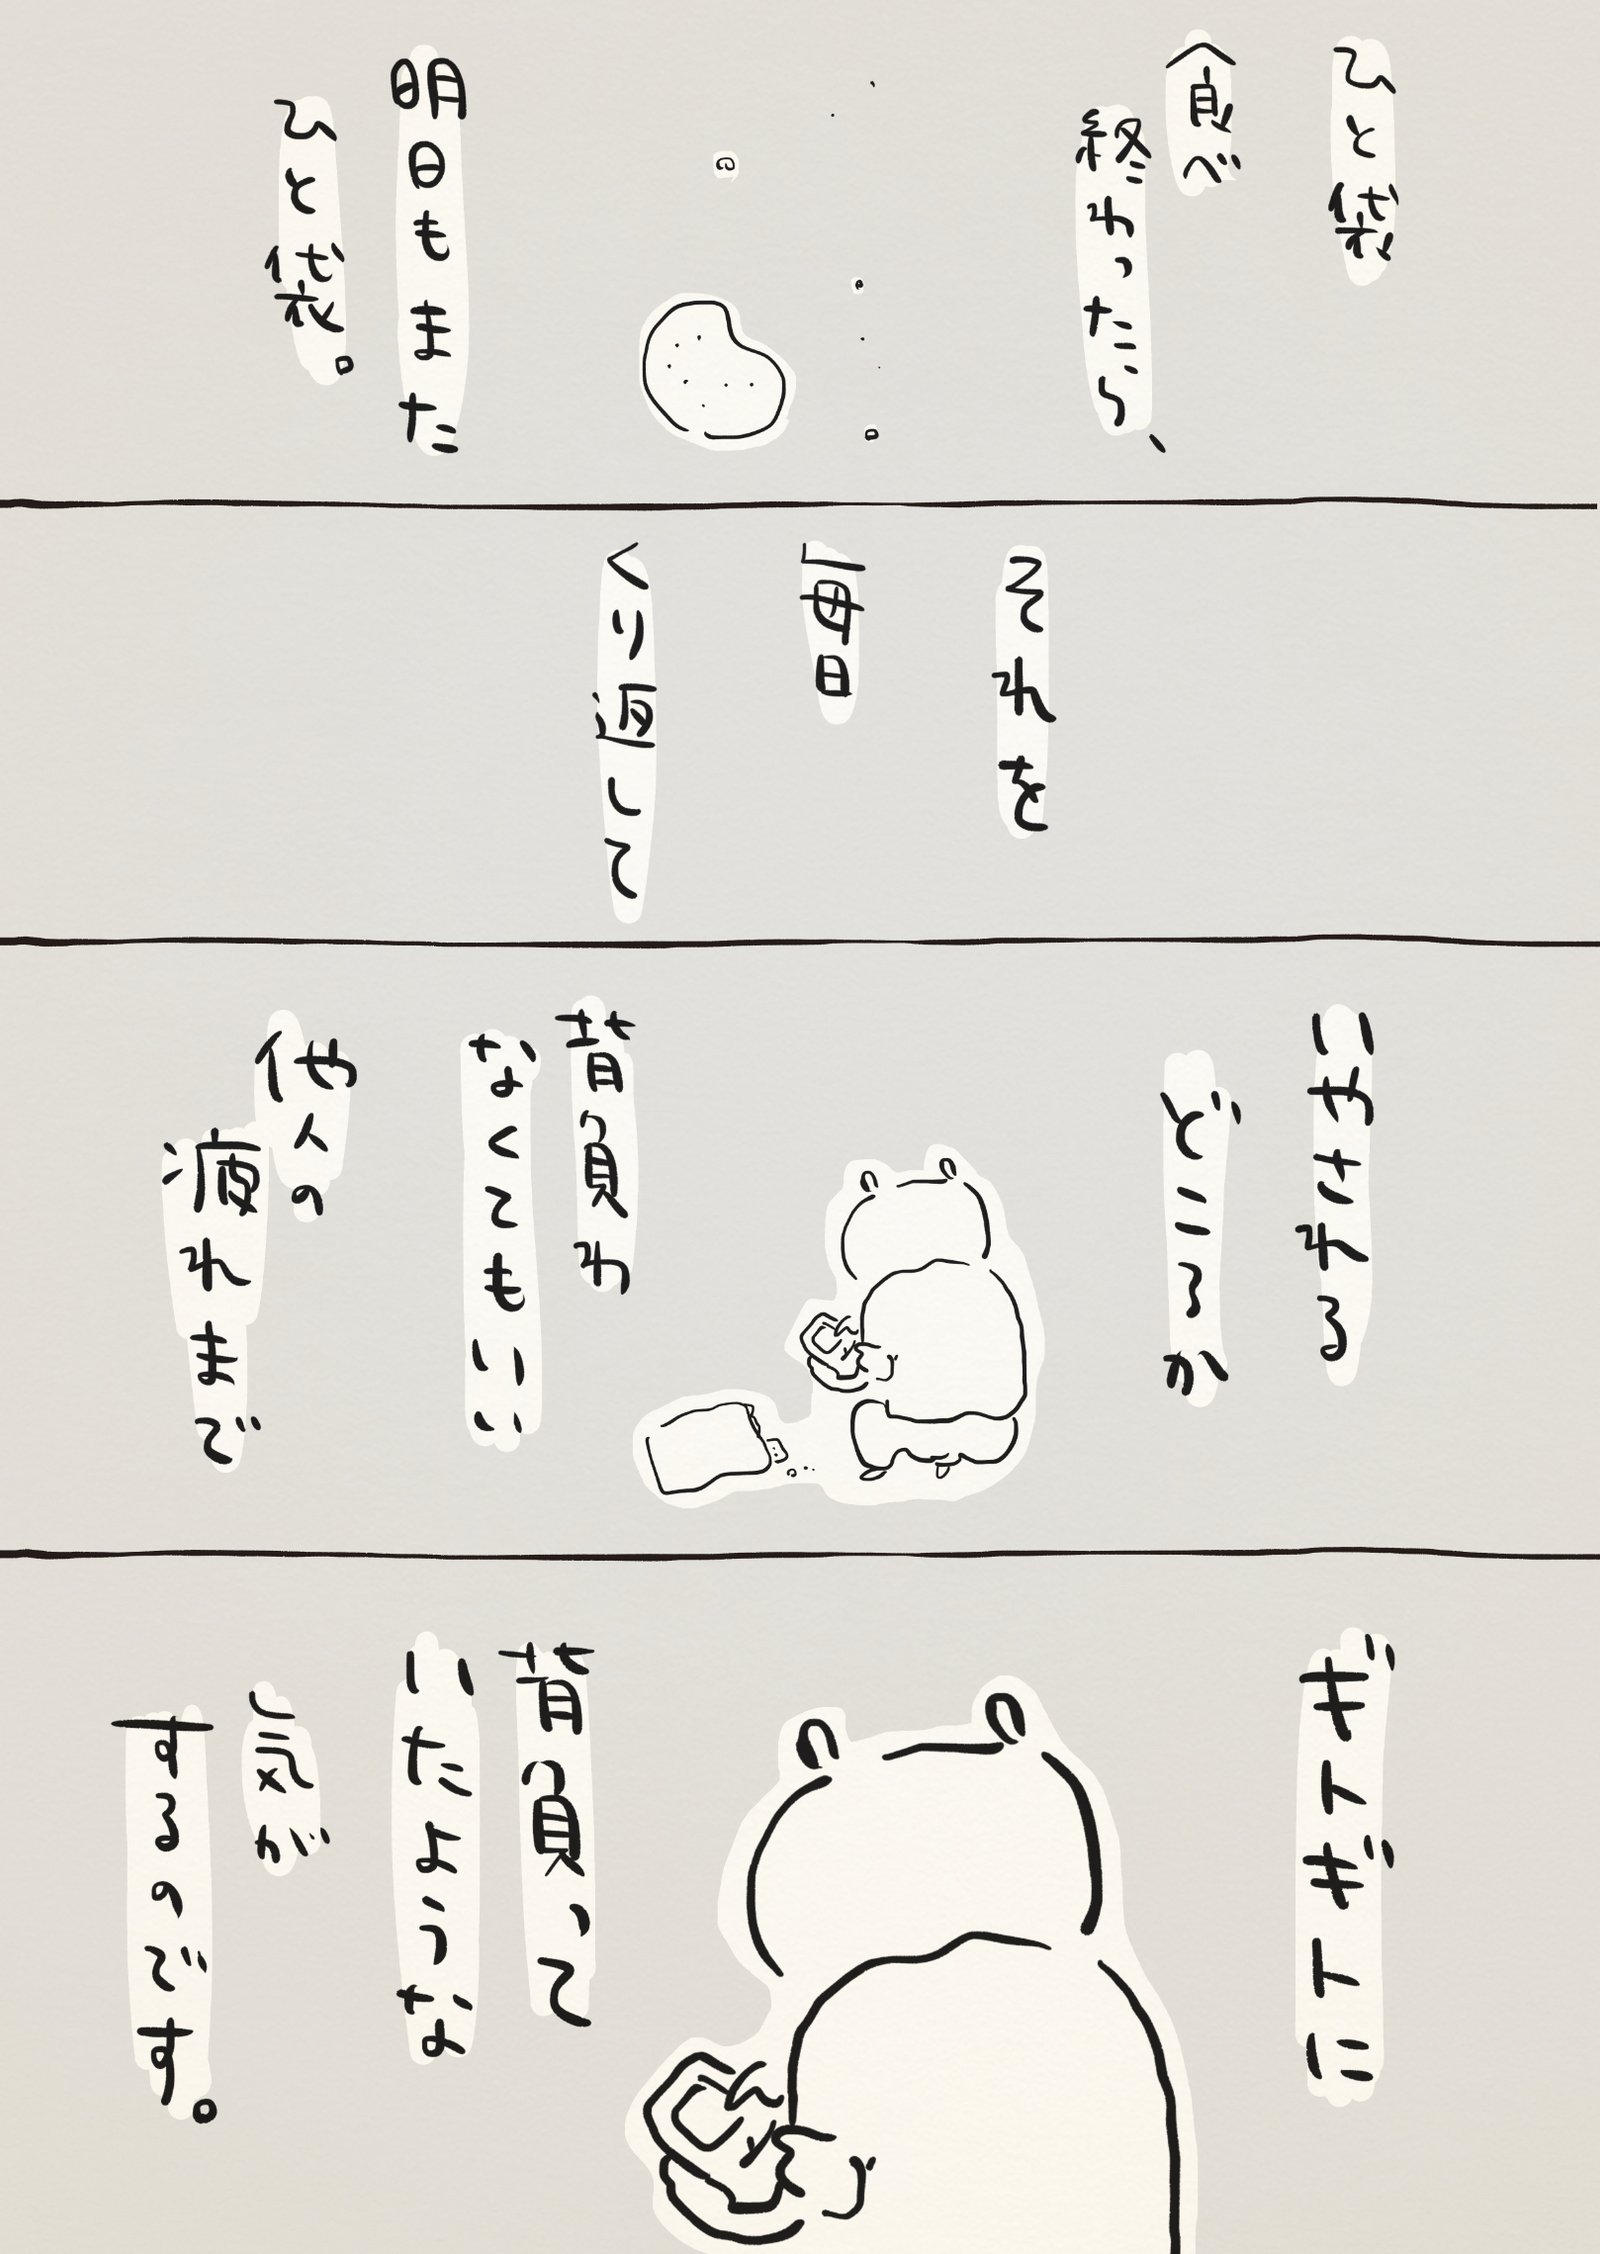 ひと袋
食べ
終わったら、
明日もまた
ひと袋。
それを
毎日
くり返して
いやされる
どころか
背負わ
なくてもいい
他人の
疲れまで
ギトギトに
背負って
いたような
気が
するのです。